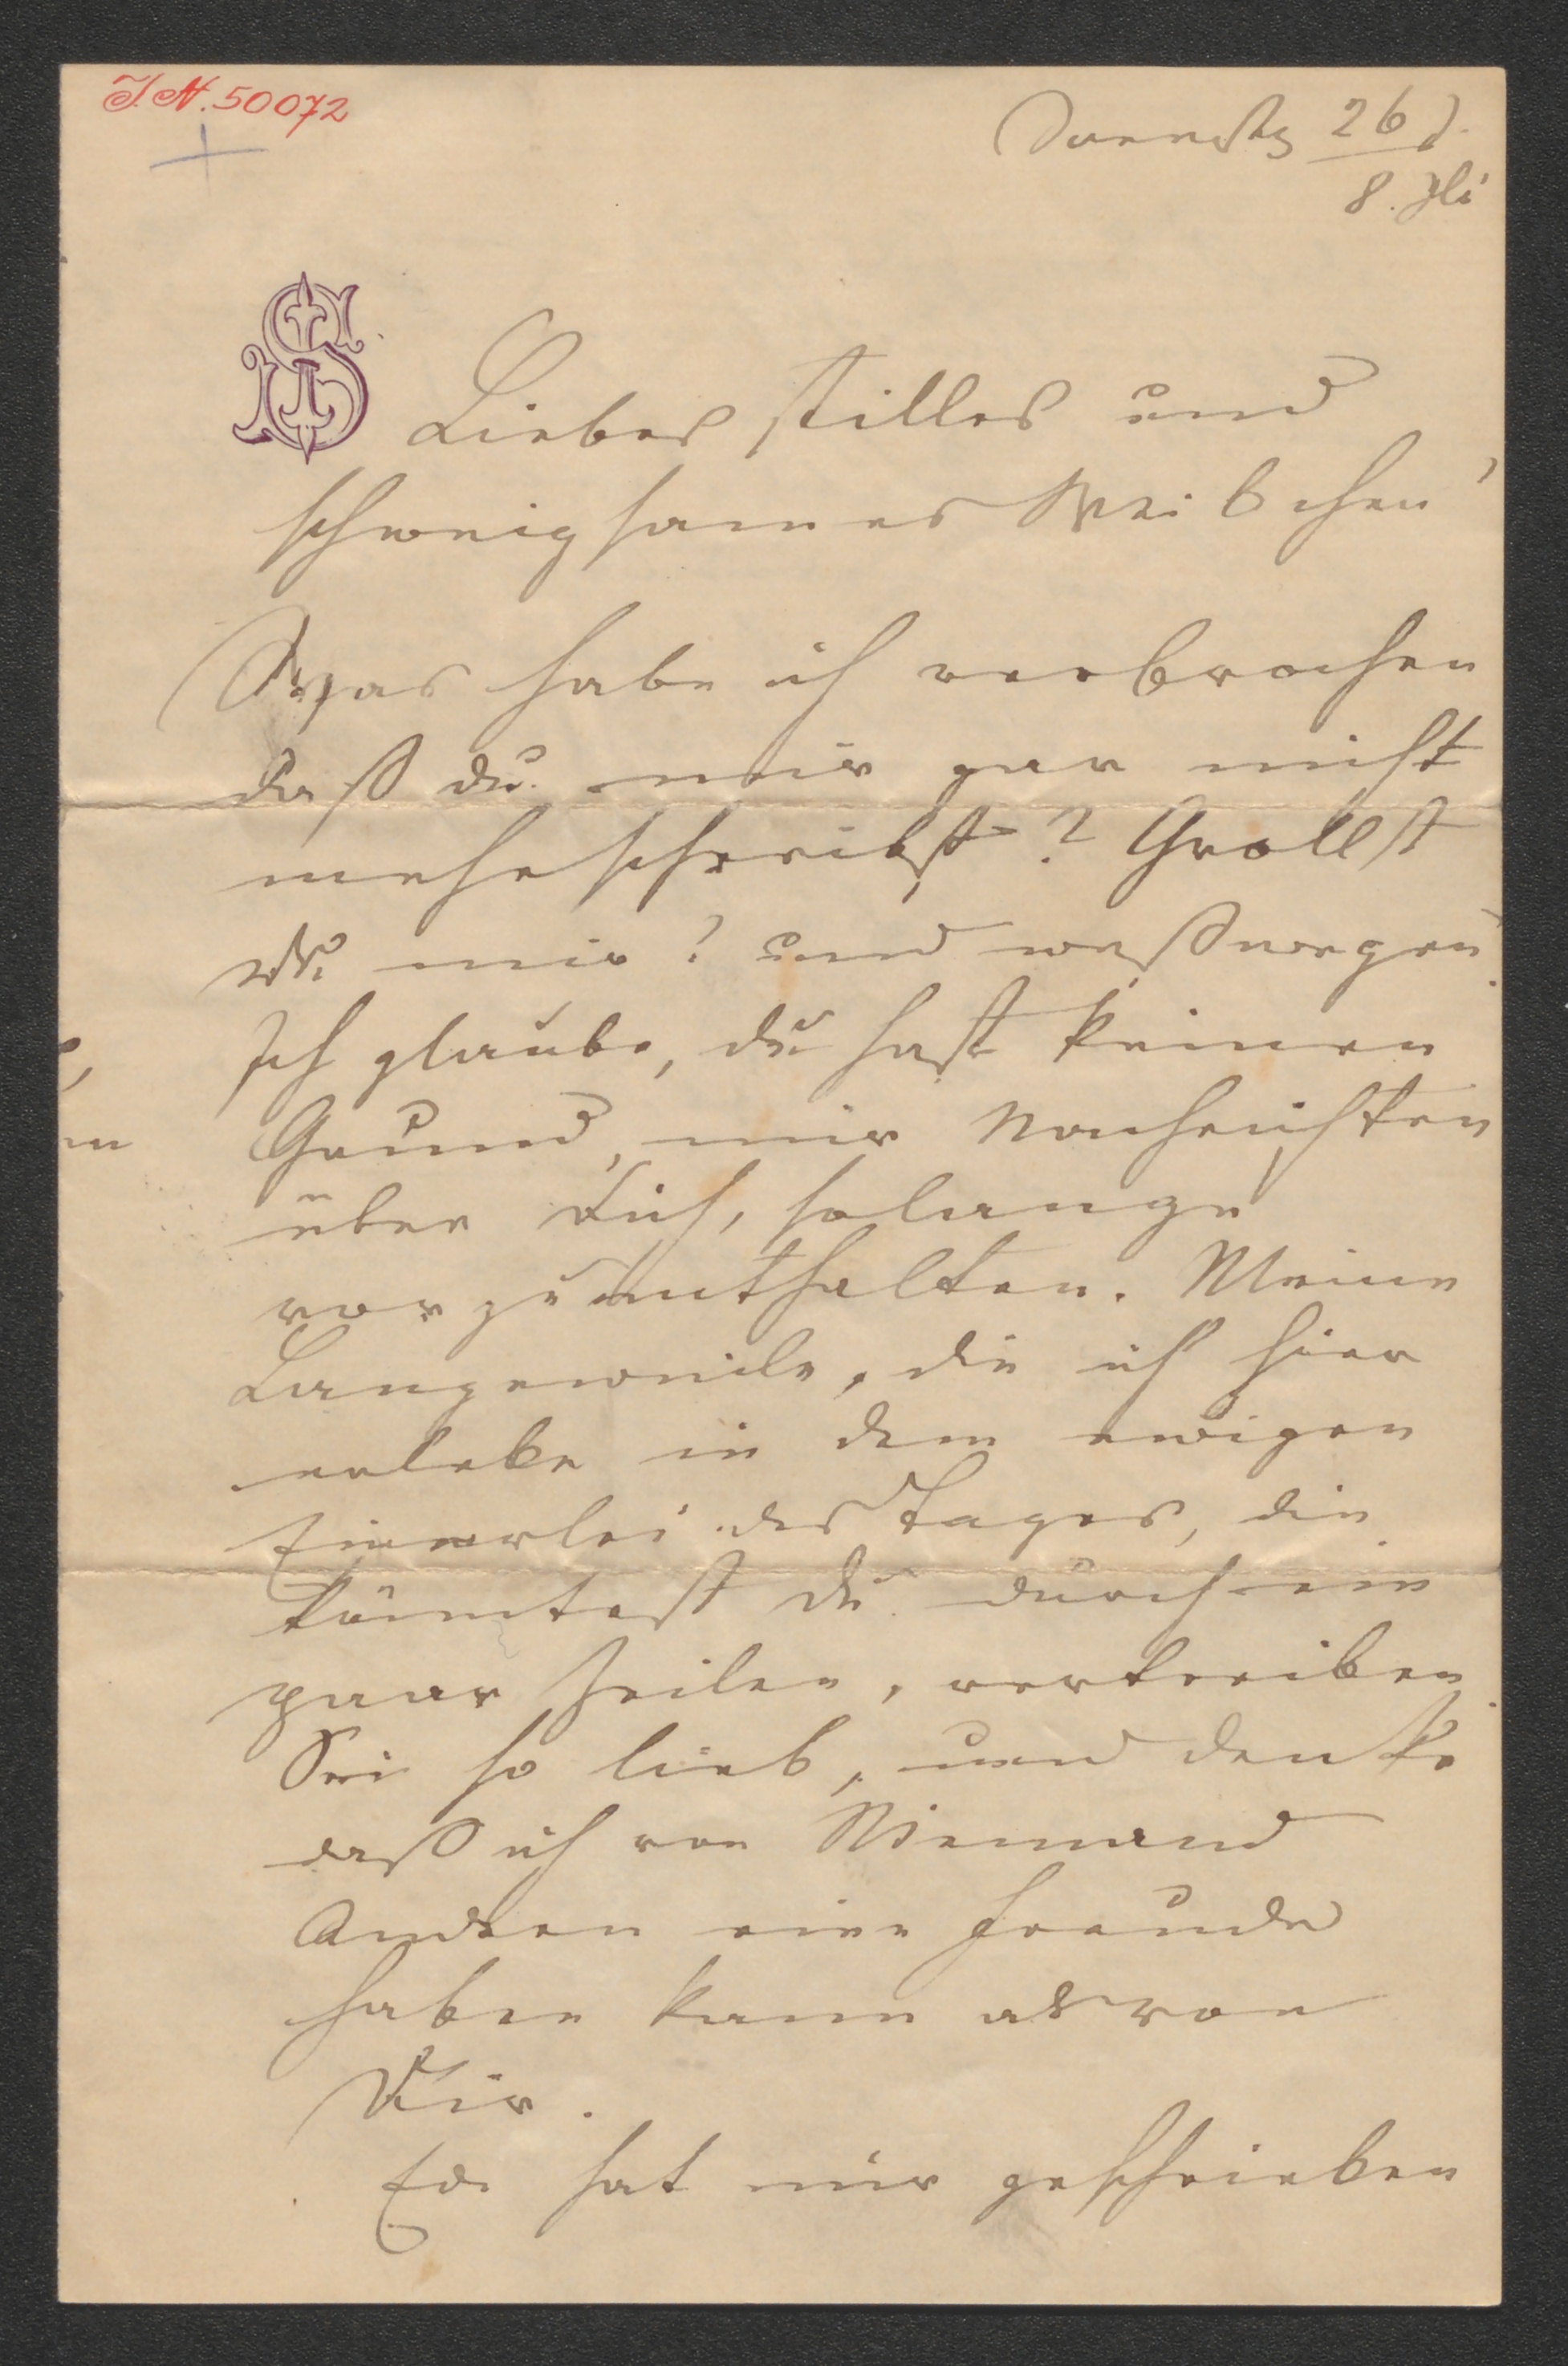 I. N. 50072
26
8.
Liebes stilles und
schweigsames Weibchen!
Was habe ich verbrochen
daß du mir gar nicht
mehr schreibst? Grollst
Du mir? und weßwegen?
Ich glaube, du hast keinen
Grund, mir Nachrichten
über Dich, so lange
vorzuenthalten. Meine
Langeweile, die ich hier
erlebe in dem ewigen
Einerlei des Tages, die
könntest du durch ein
paar Zeilen, vertreiben.
Sei so lieb, und denke
daß ich von Niemand
Andren eine Freude
haben kann als von
Dir.
hat mir geschrieben